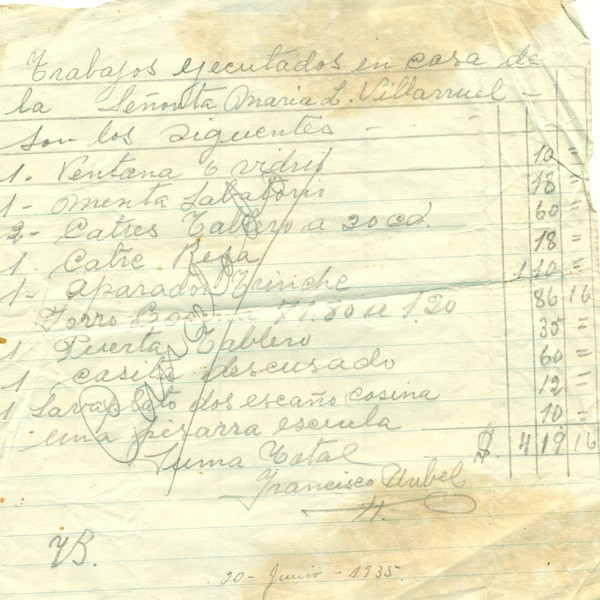 Trabajos ejecutados en casa de
la Señorita Maria L. Villarruel -
son los siguentes -
1. Ventana 6 vidri 10 =
1- menta Labatorio 18 =
2- Catres Tablero a 30 cd. 60 =
1. Catre Resa 18 =
1- aparador Trinche 110 =
Forro 71.80 a 1.20 86 16
1 Puerta Tablero 35 =
1 casito descusado 60 =
1 Lavaplato dos escaño cosina 12 =
una pisarra escuela 10 =
Suma Total $. 419 16
Francisco
VB.
20 - Junio - 1935.